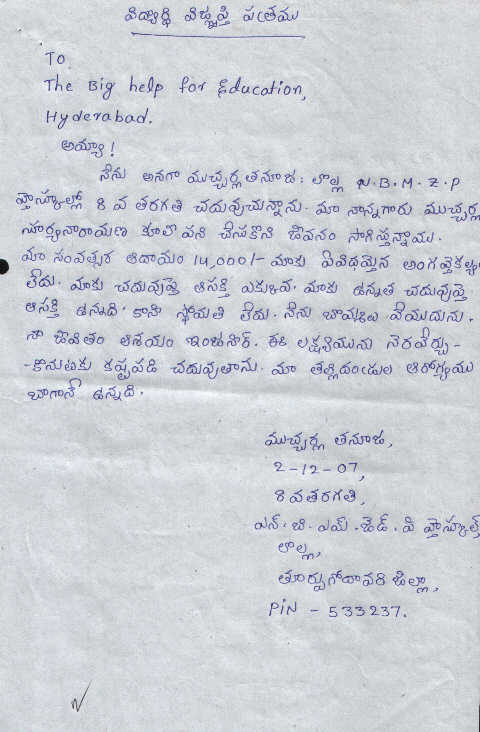 విద్యార్థి విజ్ఞప్తి పత్రము
To.
The Big help for Education,
Hyderabad.
అయ్యా!
నేను అనగా ముచ్చర్ల తనూజ. లొల్ల N.B.M.Z.P
హైస్కూల్లో 8 వ తరగతి చదువుచున్నాను. మా నాన్నగారు ముచ్చర్ల
సూర్యనారాయణ కూలి పని చేసుకొని జీవనం సాగిస్తున్నాము.
మా సంవత్సర ఆదాయం 14,000/- మాకు ఏవిధమైన అంగవైకల్యం
లేదు. మాకు చదువుపై ఆసక్తి ఎక్కువ. మాకు ఉన్నత చదువుపై
ఆసక్తి ఉన్నది. కాని స్థోమతి లేదు. నేను బొమ్మలు వేయుదును.
నా జీవితం ఆశయం ఇంజనీర్. ఈ లక్ష్యమును నెరవేర్చు-
-కొనుటకు కష్టపడి చదువుతాను. మా తల్లిదండ్రుల ఆరోగ్యము
బాగానే ఉన్నది.
ముచ్చర్ల తనూజ,
2-12-07,
8 వతరగతి,
ఎన్.బి.ఎమ్.జెడ్.పి హైస్కూల్
లొల్ల,
తూర్పుగోదావరి జిల్లా,
PiN - 533237.